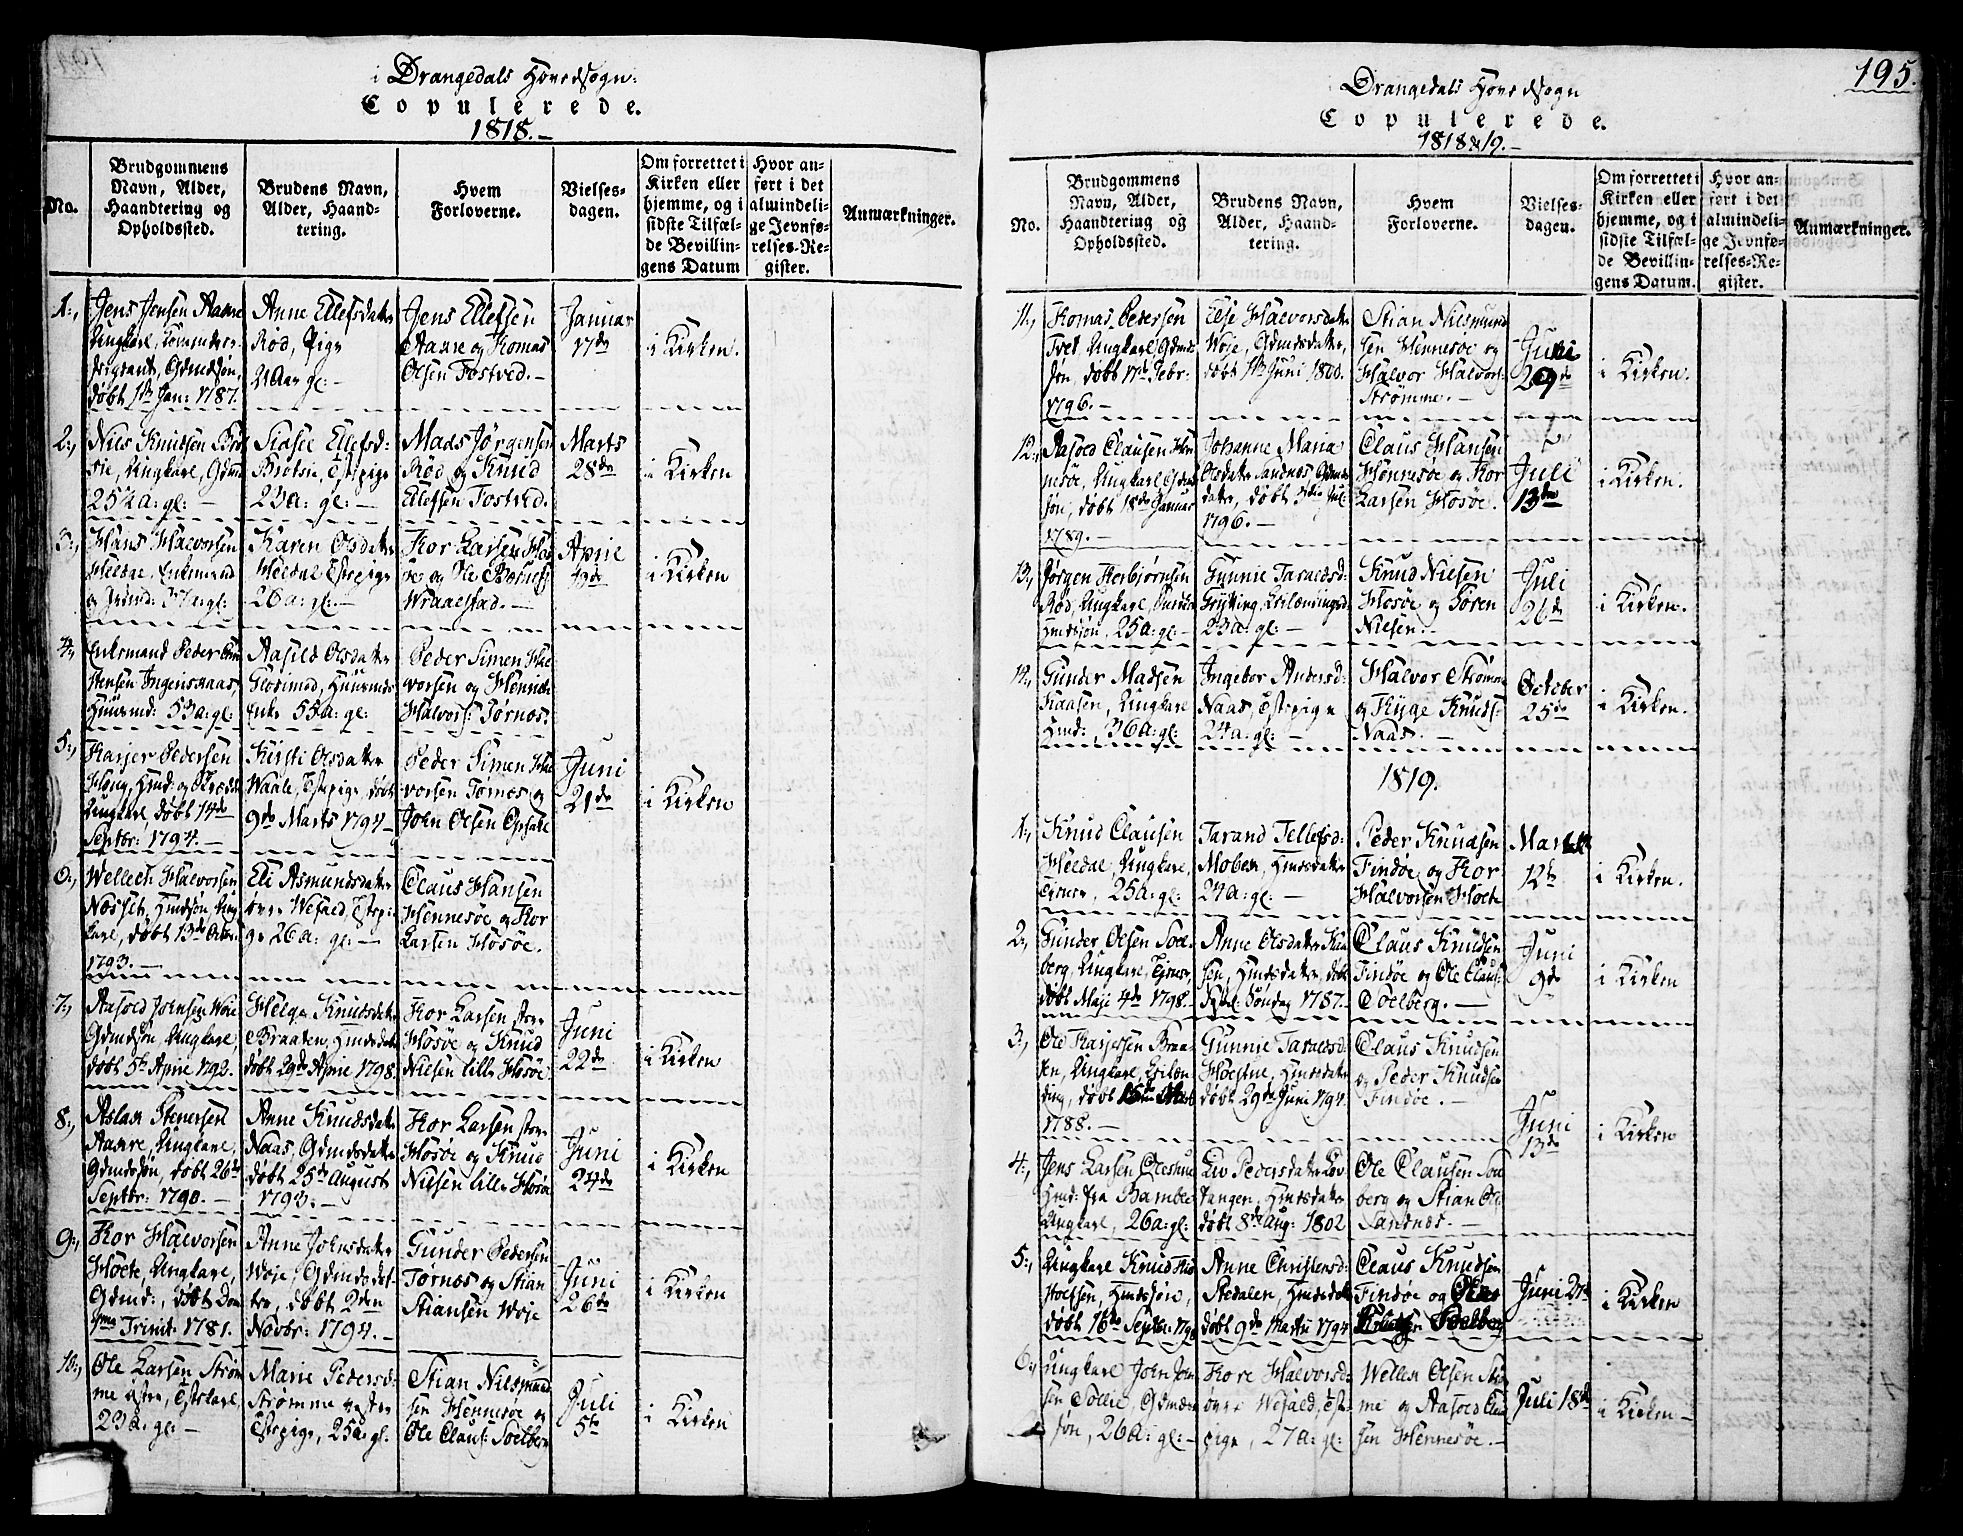 i Drangedals Hovedsogn:
Copulerede.
1818.-
No.
Brudgommens
Navn, Alder,
Haandtering og
Opholdssted.
Brudens Navn,
Alder, Haand-
tering.
Hvem
Forloverne.
Vielses-
dagen.
Om forrettet i
Kirken eller
hjemme, og i
sidste Tilfæl-
de Bevillin-
gens Datum
Hvor an-
ført i det
almindeli-
ge Jevnfø-
relses-Re-
gister.
Anmærkninger.
1.,
Jens Jensen Aarre
Ungkarl,
døbt 1te Jan: 1787.
Anne Ellefsdatter
Rød, Pige
21 Aar gl: -
Jens Ellefsen
Aarre og Tomas
Olsen Tostved. -
Januar
17de
i Kirken.
2.,
Nils Knudsen Brø-
sie, Ungkarl, Gdmd
25½ a: gl: -
Sidsel Ellefsd:
Brøksie, Tstpige
23 a: gl: -
Mads Jørgensen
Rød og Knud
Ellefsen Tostved.
Marts
28de
i Kirken
3.,
Hans Halvorsen
Heldal, Enkemand
og Husmd: 37 a: gl:
Karen Olsdatter
Heldal Tstpige
26 a: gl: -
Thor Larsen Hos-
øe og Ole
Wraalstad. -
April
i Kirken
4.,
Enkemand Peder
53 a: gl:
Aasild Olsdatter
Huusmds
Enke 55 a: gl:
Peder Simen Hal-
vorsen og Henrich
Halvors: Tørnes.
5.,
Tarjer Pedersen
Ungkarl, døbt 14de
Septbr: 1794. -
Kirsti Olsdatter
Waale, Tstpige, døbt
9de Marts 1794 -
Peder Simen Hal-
vorsen Tørnes og
John Olsen Opsale
Juni
21de
i Kirken
6.,
Wellech Halvorsen
Næsset, Hmdsøn, Ung-
karl, døbt 13de Octbr:
1793. -
Eli Asmundsdatter
øvre Wefald, Tstpi-
ge 26 a: gl: -
Claus Hansen
Hennesøe og Thor
Larsen Hosøe.
7.,
Aasold Johnsen Woie
Gdmdsøn, Ungkarl,
døbt 5te April 1792.
Helge Knudsdatter
Braaten, Hmdsdatter
døbt 29de April 1798.
Thor Larsen store
Hosøe og Knud
Nielsen lille Hosøe.
Juni
22de
i Kirken
8.,
Aslak Stenersen
Aarre, Ungkarl,
Gdmdsøn, døbt 26de
Septbr: 1790. -
Anne Knudsdatter
Naas, Gdmdsdatter
døbt 25de August
1793. -
Thor Larsen store
Hosøe og Knud
Nielsen lille Hosøe
Juni
24de
i Kirken
9.,
Thor Halvorsen
Holte, Ungkarl,
Gdmd:, døbt Dom
Trinit: 1781.
Anne Johnsdatter
Woje, Gdmdsdat-
ter, døbt 2den
Novbr: 1794. -
Gunder Pedersen
Tørnes og Stian
Stiansen Woje
Juni
26de
i Kirken
10.,
Ole Larsen Strøm-
me østre, Tstkarl,
23 a: gl: -
Marie Pedersd:
Strømme vestre
Tstpige, 25 a: gl.
Stian Nilsmund-
sen Hennesøe og
Ole Claus: Soelberg
Juli
5te
i Kirken
195.
Drangedals Hovedsogn
Copulerede.
1818 & 19. -
No.
Brudgommens
Navn, Alder,
Haandtering og
Opholdssted.
Brudens Navn,
Alder, Haand-
tering.
Hvem
Forloverne.
Vielses-
dagen.
Om forrettet i
Kirken eller
hjemme, og i
sidste Tilfæl-
de Bevillin-
gens Datum.
Hvor an-
ført i det
almindeli-
ge Jevnfø-
relses-Re-
gister.
Anmærkninger.
11.,
Tomas Pedersen
Tvet, Ungkarl, Gdmds-
søn, døbt 17de Febr:
1796. -
Else Halvorsdatter
Woje, Gdmdsdatter,
døbt 1te Juni 1800.
Stian Nilsmund-
sen Hennesøe og
Halvor Halvors:
Strømme. -
Juni
29de
i Kirken.
12.,
Aasold Clausen Hen-
nesøe, Ungkarl Gdmds-
søn, døbt 18de Januar
1789. -
Johanne Maria
Olsdatter Sandnes, Gdmds-
datter, døbt Jul:
1796. -
Claus Hansen
Hennesøe og Thor
Larsen Hosøe.
Juli
13de
i Kirken.
13.,
Jørgen Herbjørnsen
Rød, Ungkarl,
25 a: gl: -
Gunnil Taraldsd:
23 a: gl: -
Knud Nielsen
Hosøe og Søren
Nielsen. -
Juli
26de
i Kirken.
14.,
Gunder Madsen
Kaasen, Ungkarl
Hmd:, 36 a: gl: -
Ingebor Andersd:
Naas, Tstpige
24 a: gl: -
Halvor Strømme
og Tyge Knuds:
Naas. -
October
25de
i Kirken.
1819.
1.,
Knud Clausen
Heldal, Ungkarl,
25 a: gl:
Tarand Tellefsd:
Moben, Hmdsdatter
24 a: gl: -
Peder Knudsen
Findøe og Thor
Halvorsen Holte
12te
i Kirken.
2.,
Gunder Olsen Soel-
berg, Ungkarl,
døbt Maji 4de 1798. -
Anne Olsdatter Kaa-
sen, Hmdsdatter, døbt
Søndag 1787. -
Claus Knudsen
Findøe og Ole Claus:
Soelberg. -
Juni
9de
i Kirken
3.,
Ole Tarjersen Braa-
ten, Ungkarl,
døbt
1788. -
Gunnil Taraldsd:
Hmdsdatter
døbt 29de Juni 1794.
Claus Knudsen
og Peder Knudsen
Findøe. -
Juni
13de
i Kirken
4.,
Jens Larsen
Hmd: fra Bamble
Ungkarl, 26 a: gl:
Liv Pedersdatter Lov-
tangen, Hmdsdatter
døbt 8de Aug: 1802
Ole Clausen Soel-
berg og Stian Ols:
Sandnes. -
5.,
Ungkarl Knud
Hmdsøn,
døbt 16de Septbr: 1798
Anne Christensd:
Stedalen, Hmdsdatter
døbt 9de Marts 1794
Claus Knudsen
Findøe og Ole
Soelberg
Juni 27de
i Kirken
6.,
Ungkarl John Jen-
sen Tollie, Gdmds-
søn, 26 a: gl: -
Thore Halvorsd:
øvre Wefald, Tst-
pige, 27 a: gl:
Wellek Olsen Strøm-
me og Aasold Clau-
sen Hennesøe. -
Juli 18de
i Kirken -